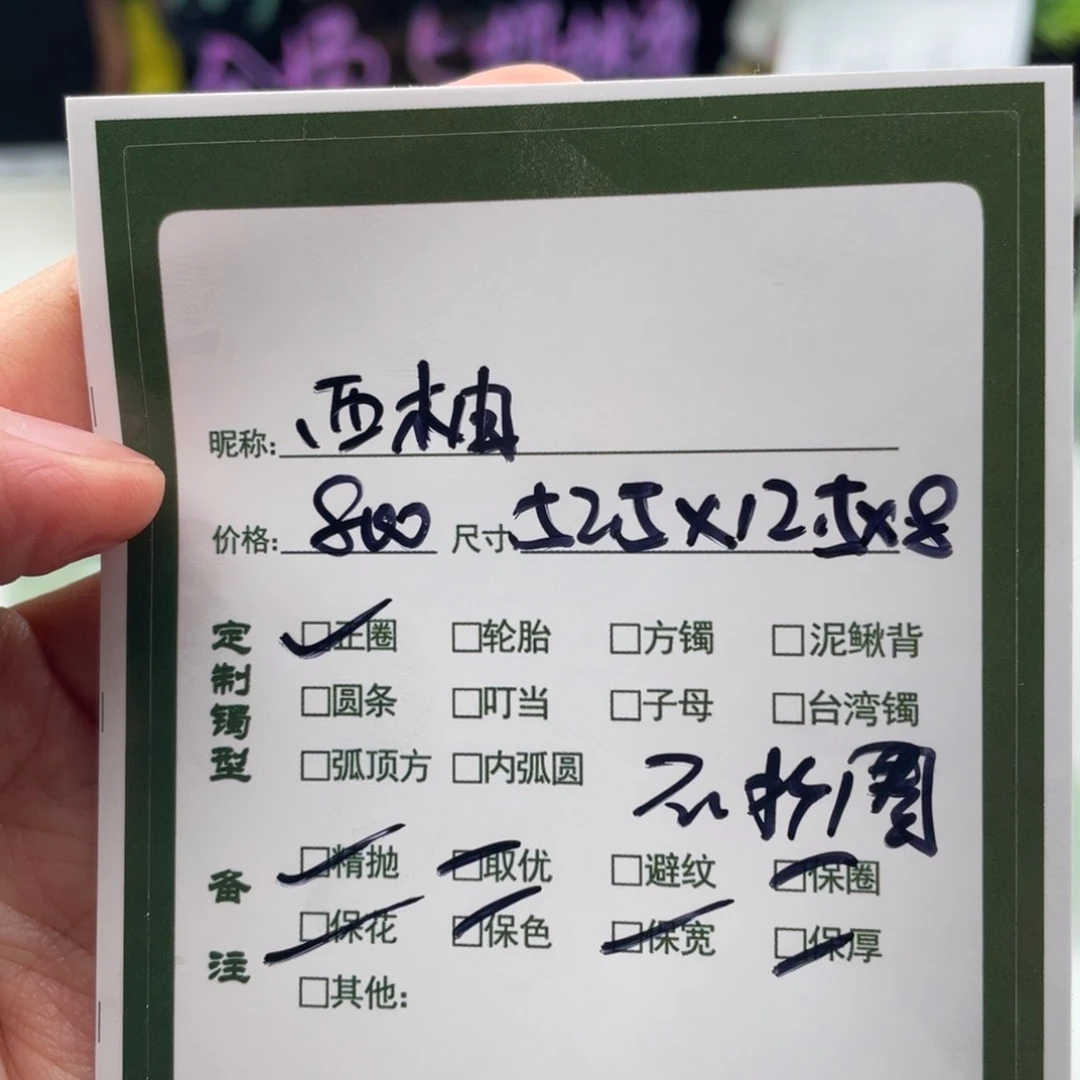 昵称: 西柚
价格: 800 尺寸 525×12.5×8
定制镯型
☑正圈 □轮胎 □方镯 □泥鳅背
□圆条 □叮当 □子母 □台湾镯
□弧顶方 □内弧圆
备注
☑精抛 ☑取优 □避纹 ☑保圈
☑保花 ☑保色 ☑保宽 ☑保厚
□其他: